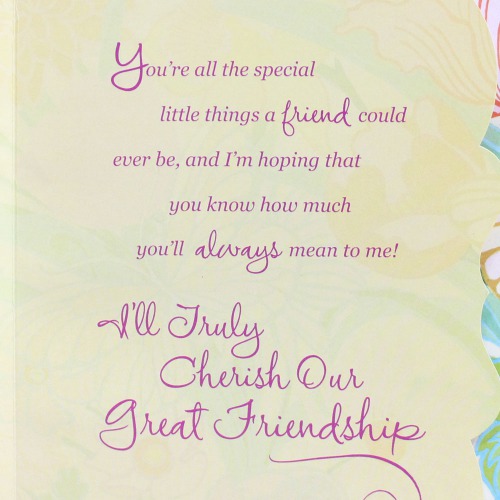 You're all the special
little things a friend could
ever be, and I'm hoping that
you know how much
you'll always mean to me!
I'll Truly
Cherish Our
Great Friendship